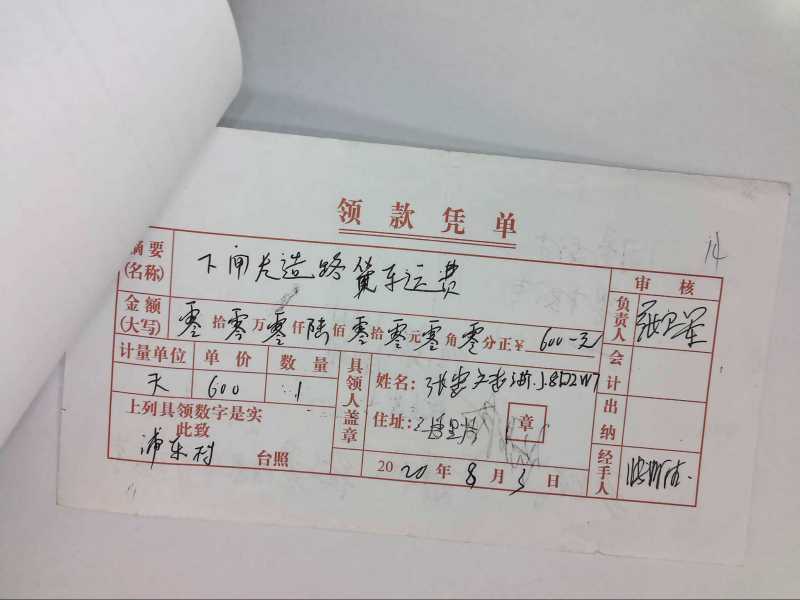 领款凭单
14
摘要
(名称)
下闸 造路 车运费
审核
金额
(大写)
零拾零万零仟陆佰零拾零元零角零分正¥600-元
负责人
张 军
计量单位 单价 数量
天 600 1
具领人盖章
姓名:张
住址:
章
会计
出纳
上列具领数字是实
此致
浦东村 台照
2020年8月3日
经手人